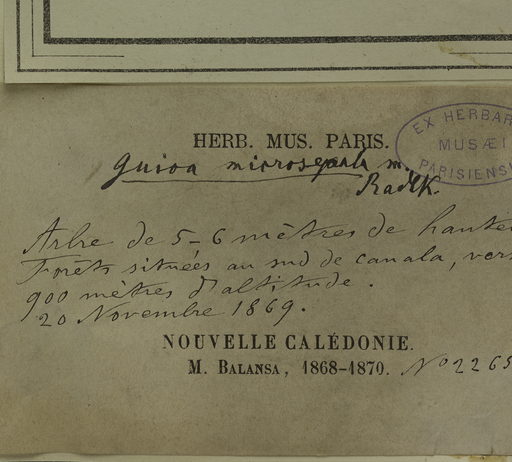 HERB. MUS. PARIS.
Guioa microsepala m.
Radlk.
EX HERBAR
MUSÆI
PARISIENSI
Arbre de 5-6 mètres de hauteu
Forêts situées au sud de canala, vers
900 mètres d'altitude.
20 Novembre 1869.
NOUVELLE CALÉDONIE.
M. BALANSA, 1868-1870. No 2265